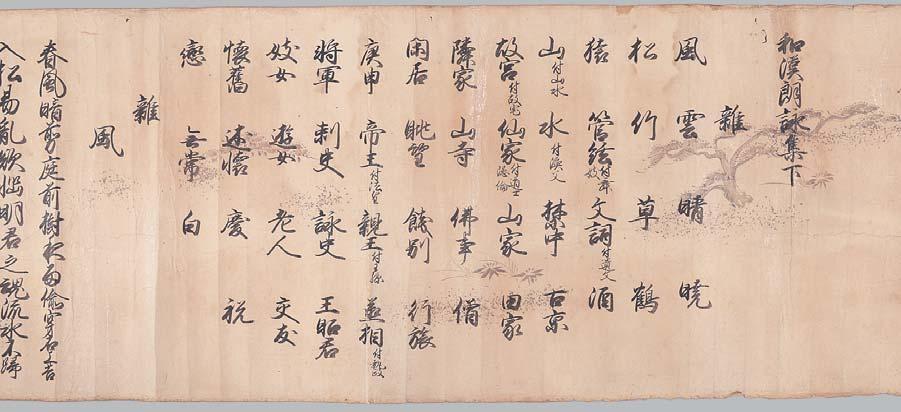 和漢朗詠集下
雜
風 雲 晴 暁
松 竹 草 鶴
猿 管絃付舞妓 文詞付遺文 酒
山付山水 水付漁父 禁中 古京
故宮付故宅 仙家付道士隠倫 山家 田家
隣家 山寺 佛事 僧
閑居 眺望 餞別 行旅
庚申 帝王付法皇 親王付王孫 丞相付執政
将軍 刺史 詠史 王昭君
妓女 遊女 老人 交友
懐舊 述懐 慶 祝
戀 無常 白
雜
風
春風暗剪庭前樹夜雨偸穿石上苔
入松易乱欲悩明君之魂流水不歸